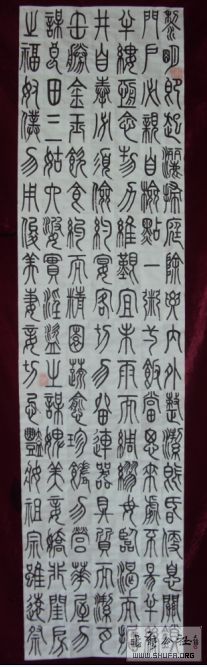 黎明即起灑掃庭除要內外整潔既昏便息關鎖
門戶必親自檢點一粥一飯當思來處不易半絲
半縷恆念物力維艱宜未雨而綢繆毋臨渴而掘
井自奉必須儉約宴客切勿留連器具質而潔瓦
缶勝金玉飲食約而精園蔬愈珍饈勿營華屋勿
謀良田三姑六婆實淫盜之媒婢美妾嬌非閨房
之福奴僕勿用俊美妻妾切忌豔妝祖宗雖遠祭
WWW.SHUFA.ORG